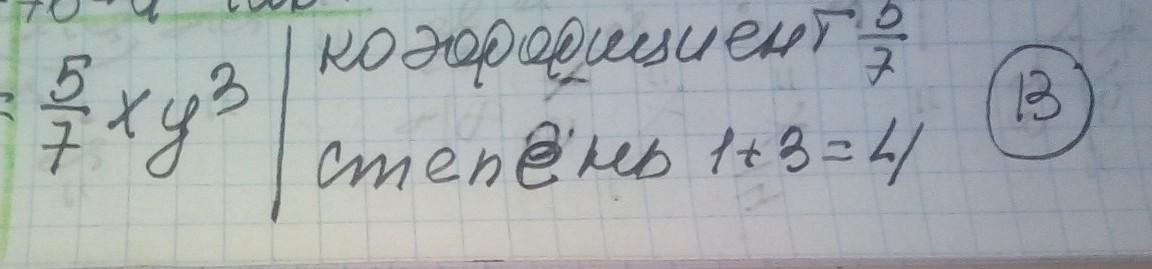 = 5/7 xy³
коэффициент 5/7
степень 1+3=4
В